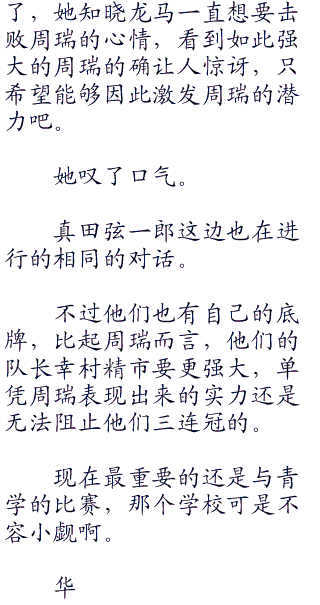 了，她知晓龙马一直想要击
败周瑞的心情，看到如此强
大的周瑞的确让人惊讶，只
希望能够因此激发周瑞的潜
力吧。
她叹了口气。
真田弦一郎这边也在进
行的相同的对话。
不过他们也有自己的底
牌，比起周瑞而言，他们的
队长幸村精市要更强大，单
凭周瑞表现出来的实力还是
无法阻止他们三连冠的。
现在最重要的还是与青
学的比赛，那个学校可是不
容小觑啊。
华